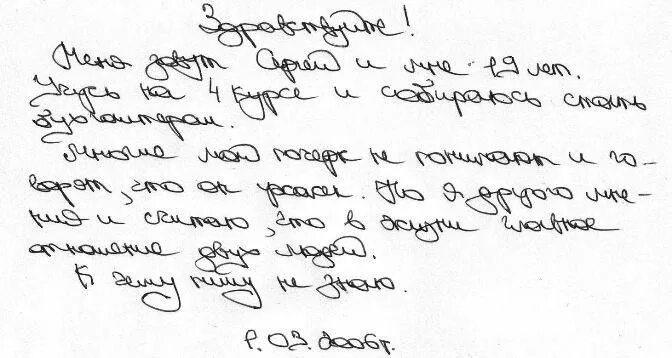 Здравствуйте!
Меня зовут Сергей и мне 19 лет.
Учусь на 4 курсе и собираюсь стать
бухгалтером.
Многие мой почерк не понимают и го-
ворят, что он ужасен. Но я другого мне-
ния и считаю, что в жизни главное
отношение двух людей.
К чему пишу не знаю.
03.2006г.